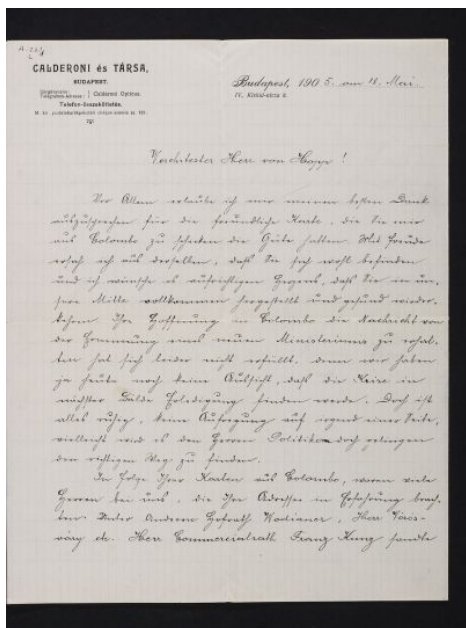 CALDERONI és TÁRSA,
BUDAPEST.
Calderoni Optikus.
Telefon-összeköttetés.
Budapest, 1905. am 18. Mai.
IV., Kishíd-utcza 8.
Verehrtester Herr von Hopp!
Vor Allem erlaube ich mir meinen besten Dank
auszusprechen für die freundliche Karte, die Sie mir
aus Colombo zu schicken die Güte hatten. Mit Freude
ersah ich aus derselben, daß Sie sich wohl befinden
und ich wünsche es aufrichtigen Herzens, daß Sie in un-
sere Mitte vollkommen hergestellt und gesund wieder-
kehren. Ihre Hoffnung in Colombo die Nachricht von
der Ernennung eines neuen Ministeriums zu erhal-
ten hat sich leider nicht erfüllt, denn wir haben
ja heute noch keine Aussicht, daß die Krise in
nächster Bälde Erledigung finden werde. Doch ist
alles ruhig, keine Aufregung auf irgend einer Seite,
vielleicht wird es den Herren Politikern doch gelingen
den richtigen Weg zu finden.
In Folge Ihrer Karten aus Colombo, waren viele
Herren bei uns, die Ihre Adresse in Erfahrung brach-
ten. Unter Anderem Hofrath Wodianer, Herr Vörös-
váry etc. Herr Commercialrath Franz Kunz sandte